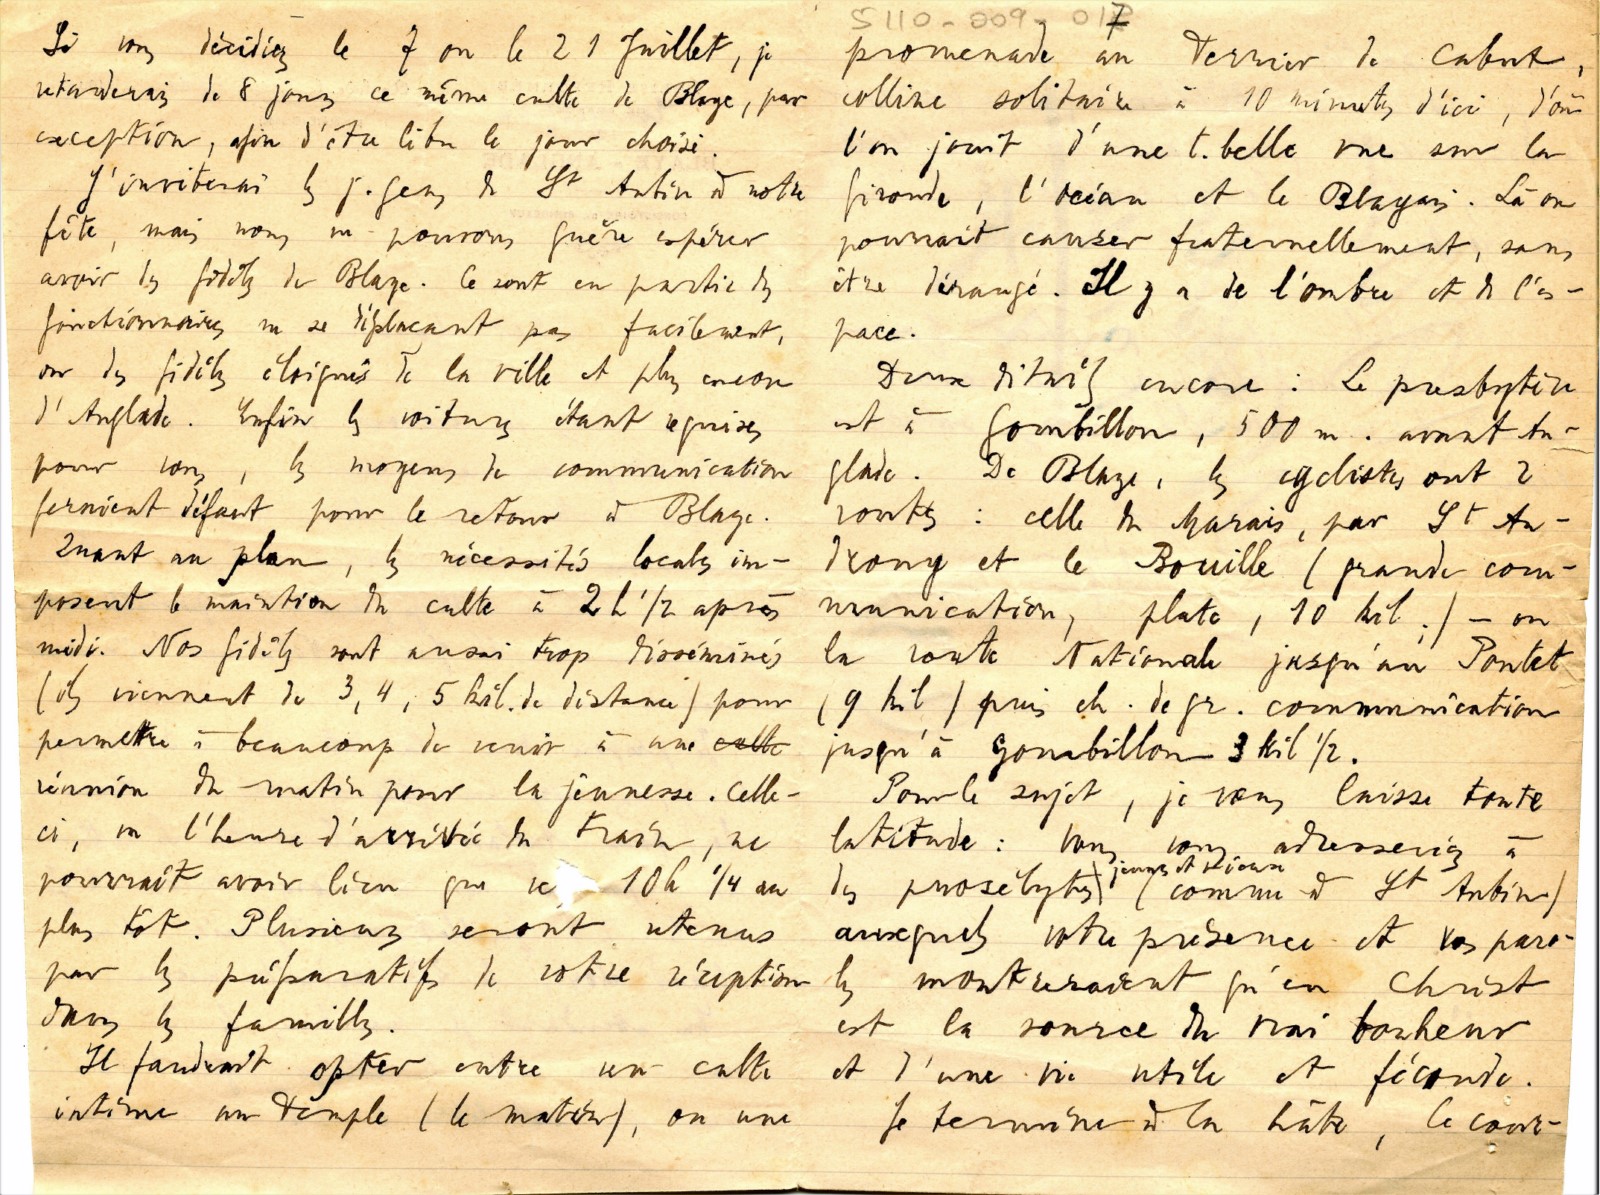 Si vous décidiez le 7 ou le 21 Juillet, je
retarderais de 8 jours ce même culte de Blaye, par
exception, afin d'être libre le jour choisi.
J'inviterai les j. gens de St Aubin à notre
fête, mais nous ne pouvons guère espérer
avoir des fidèles de Blaye. Ce sont en partie des
fonctionnaires ne se déplaçant pas facilement,
ou des fidèles éloignés de la ville et plus encore
d'Anglade. Enfin les voitures étant requises
pour vous, les moyens de communication
feraient défaut pour le retour à Blaye.
Quant au plan, les nécessités locales im-
posent le maintien du culte à 2h 1/2 après
midi. Nos fidèles sont aussi trop disséminés
(ils viennent de 3, 4, 5 kil. de distance) pour
permettre à beaucoup de venir à une culte
réunion du matin pour la jeunesse. Celle-
ci, vu l'heure d'arrivée du train, ne
pourrait avoir lieu que 10h 1/4 au
plus tôt. Plusieurs seront retenus
par les préparatifs de votre réception
dans les familles.
Il faudrait opter entre un culte
intime au Temple (le matin), ou une
S110-009-017
promenade au Terrier de Cabut,
colline solitaire à 10 minutes d'ici, d'où
l'on jouit d'une t. belle vue sur la
Gironde, l'océan et le Blayais. Là on
pourrait causer fraternellement, sans
être dérangé. Il y a de l'ombre et de l'es-
pace.
Deux détails encore : Le presbytère
est à Gombillon, 500 m. avant An-
glade. De Blaye, les cyclistes ont 2
routes : celle du Marais, par St An-
drony et le Bouille (grande com-
munication, plate, 10 kil.) – ou
la route Nationale jusqu'au Pontet
(9 kil) puis ch. de gr. communication
jusqu'à Gombillon 3 kil 1/2.
Pour le sujet, je vous laisse toute
latitude : vous vous adresseriez à
des prosélytes jeunes et vieux (comme à St Aubin)
auxquels votre présence et vos paro-
les montreraient qu'en Christ
est la source du vrai bonheur
et d'une vie utile et féconde.
Je termine à la hâte, le cour-